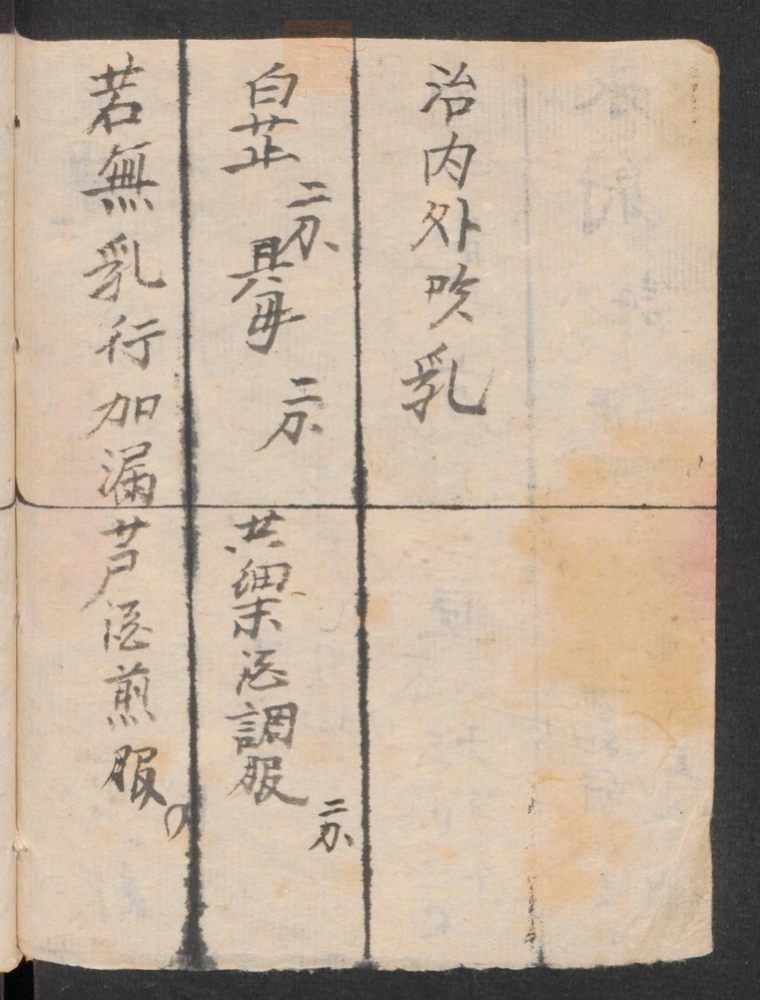 治内外吹乳
白芷二分 貝母二分 共細末酒調服二分
若無乳行加漏芦酒煎服